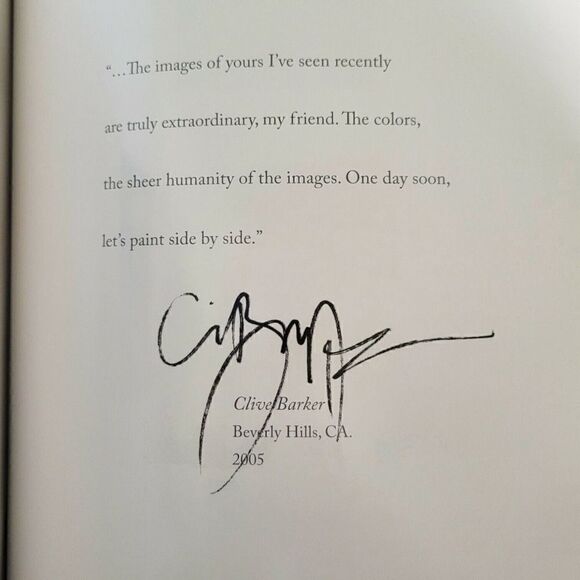 “…The images of yours I’ve seen recently
are truly extraordinary, my friend. The colors,
the sheer humanity of the images. One day soon,
let’s paint side by side.”
Clive Barker
Beverly Hills, CA.
2005